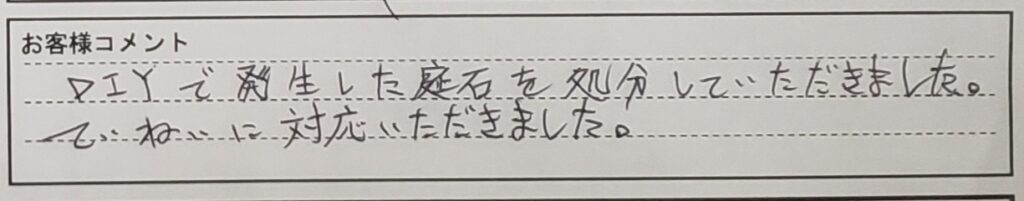 お客様コメント
DIYで発生した庭石を処分していただきました。
ていねいに対応いただきました。